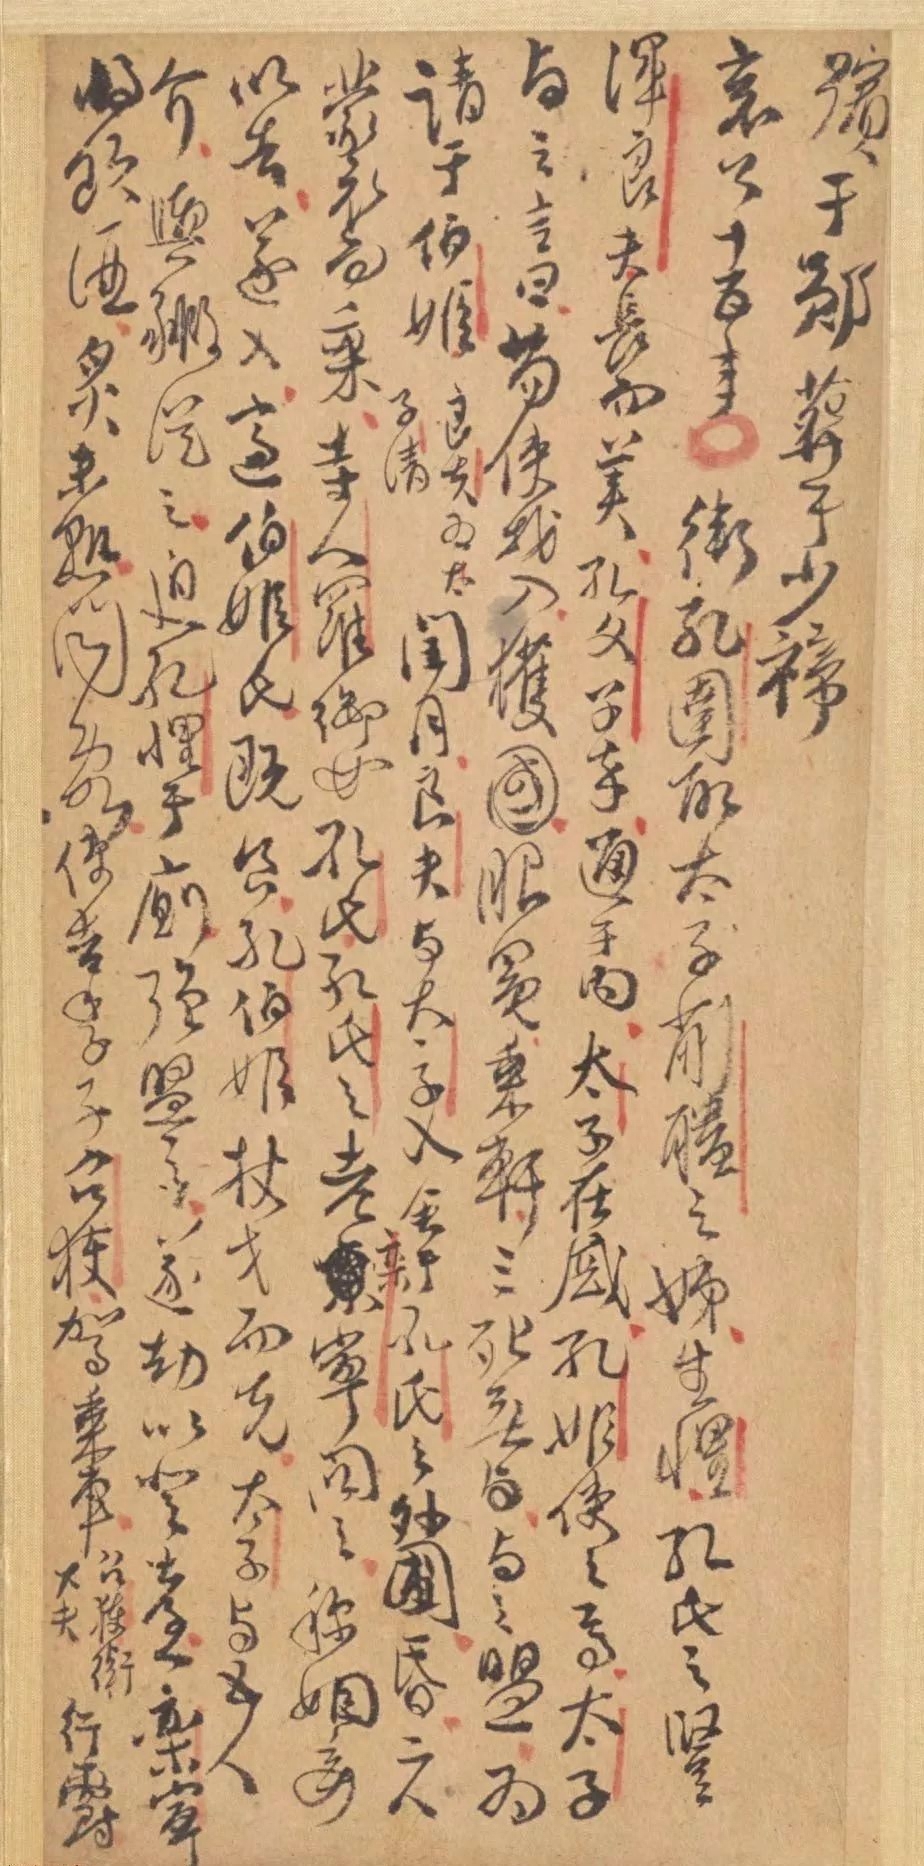 殯于鄖葬于少禘
哀公十五年 衛孔圉取太子蒯聵之姊生悝孔氏之豎
渾良夫長而美孔文子卒通于內太子在戚孔姬使之焉太子
与之言曰苟使我入獲國服冕乘軒三死無与与之盟为
請于伯姬 良夫为太子請 閏月良夫与太子入舍于孔氏之外圃昏二人
蒙衣而乘寺人羅御女孔氏孔氏之老欒寧問之称姻妾
以告遂入適伯姬氏既食孔伯姬杖戈而先太子与五人
介輿豭從之迫孔悝于廁強盟之遂劫以登臺欒寧
將飲酒炙未熟聞亂使告季子召獲駕乘車 召獲衛大夫 行爵